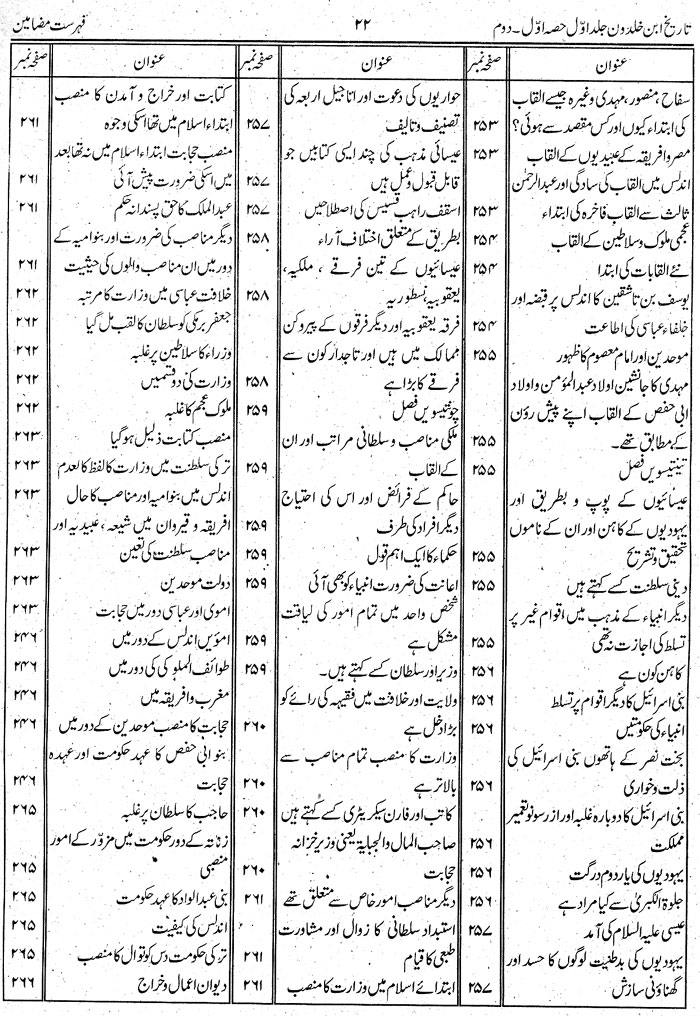 تاریخ ابن خلدون جلد اوّل حصہ اوّل ۔ دوم
۲۲
فہرست مضامین
عنوان
صفحہ نمبر
سفاح، منصور، مہدی وغیرہ جیسے القاب
کی ابتداء کیوں اور کس مقصد سے ہوئی؟ ۲۵۳
مصر و افریقہ کے عبیدیوں کے القاب ۲۵۳
اندلس میں القاب کی سادگی اور عبدالرحمٰن
ثالث سے القاب فاخرہ کی ابتداء ۲۵۳
عجمی ملوک و سلاطین کے القاب ۲۵۴
نئے القابات کی ابتدا ۲۵۴
یوسف بن تاشقین کا اندلس پر قبضہ اور
خلفاء عباسی کی اطاعت ۲۵۴
موحدین اور امام معصوم کا ظہور ۲۵۵
مہدی کا جانشین اولاد عبدالمؤمن و اولاد
ابی حفص کے القاب اپنے پیش رؤں
کے مطابق تھے۔ ۲۵۵
تینتیسویں فصل ۲۵۵
عیسائیوں کے پوپ و بطریق اور
یہودیوں کے کاہن اور ان کے ناموں
تحقیق و تشریح ۲۵۵
دینی سلطنت کسے کہتے ہیں ۲۵۵
دیگر انبیاء کے مذہب میں اقوام غیر پر
تسلط کی اجازت نہ تھی ۲۵۵
کاہن کون ہے ۲۵۶
بنی اسرائیل کا دیگر اقوام پر تسلط ۲۵۶
انبیاء کی حکومتیں ۲۵۶
بخت نصر کے ہاتھوں بنی اسرائیل کی
ذلت و خواری ۲۵۶
بنی اسرائیل کا دوبارہ غلبہ اور از سر نو تعمیر
مملکت ۲۵۶
یہودیوں کی بار دوم درگت ۲۵۶
جلوۃ الکبریٰ سے کیا مراد ہے ۲۵۶
عیسیٰ علیہ السلام کی آمد ۲۵۷
یہودیوں کی بدطنیت لوگوں کا حسد اور
گھناؤنی سازش ۲۵۷
عنوان
صفحہ نمبر
حواریوں کی دعوت اور اناجیل اربعہ کی
تصنیف و تالیف ۲۵۷
عیسائی مذہب کی چند ایسی کتابیں جو
قابل قبول و عمل ہیں ۲۵۷
اسقف راہب قسیس کی اصطلاحیں ۲۵۷
بطریق کے متعلق اختلاف آراء ۲۵۸
عیسائیوں کے تین فرقے ، ملکیہ،
یعقوبیہ، نسطوریہ ۲۵۸
فرقہ یعقوبیہ اور دیگر فرقوں کے پیرو کن
ممالک میں ہیں اور تاجدار کون سے
فرقے کا بڑا ہے ۲۵۸
چونتیسویں فصل ۲۵۹
ملکی مناصب و سلطانی مراتب اور ان
کے القاب ۲۵۹
حاکم کے فرائض اور اس کی احتیاج
دیگر افراد کی طرف ۲۵۹
حکماء کا ایک اہم قول ۲۵۹
اعانت کی ضرورت انبیاء کو بھی آئی ۲۵۹
شخص واحد میں تمام امور کی لیاقت
مشکل ہے ۲۵۹
وزیر اور سلطان کسے کہتے ہیں۔ ۲۵۹
ولایت اور خلافت میں فقیہہ کی رائے کو
بڑا دخل ہے ۲۶۰
وزارت کا منصب تمام مناصب سے
بالاتر ہے ۲۶۰
کاتب اور فارن سیکریٹری کسے کہتے ہیں ۲۶۰
صاحب المال والجبایۃ یعنی وزیر خزانہ
حجابت ۲۶۰
دیگر مناصب امور خاص سے متعلق تھے ۲۶۱
استبداد سلطانی کا زوال اور مشاورت
طبعی کا قیام ۲۶۱
ابتدائے اسلام میں وزارت کا منصب ۲۶۱
عنوان
صفحہ نمبر
کتابت اور خراج و آمدن کا منصب
ابتداء اسلام میں تھا اسکی وجوہ ۲۶۱
منصب حجابت ابتداء اسلام میں نہ تھا بعد
میں اسکی ضرورت پیش آئی ۲۶۱
عبدالملک کا حق پسندانہ حکم ۲۶۱
دیگر مناصب کی ضرورت اور بنو امیہ کے
دور میں ان مناصب والوں کی حیثیت ۲۶۱
خلافت عباسی میں وزارت کا مرتبہ ۲۶۲
جعفر برمکی کو سلطان کا لقب مل گیا ۲۶۲
وزراء کا سلاطین پر غلبہ ۲۶۲
وزارت کی دو قسمیں ۲۶۲
ملوک عجم کا غلبہ ۲۶۲
منصب کتابت ذلیل ہو گیا ۲۶۳
ترکی سلطنت میں وزارت کا لفظ کالعدم ۲۶۳
اندلس میں بنو امیہ اور مناصب کا حال ۲۶۳
افریقہ و قیروان میں شیعہ، عبیدیہ اور
مناصب سلطنت کی تعین ۲۶۳
دولت موحدین ۲۶۳
اموی اور عباسی دور میں حجابت ۲۶۳
امویں اندلس کے دور میں ۲۴۶
طوائف الملوکی کی دور میں ۲۴۶
مغرب و افریقہ میں ۲۴۶
حجابت کا منصب موحدین کے دور میں ۲۴۶
بنو ابی حفص کا عہد حکومت اور عہدہ
حجابت ۲۴۶
حاجب کا سلطان پر غلبہ ۲۶۵
زناتہ کے دور حکومت میں مزوّر کے امور
منصبی ۲۶۵
بنی عبدالواد کا عہد حکومت ۲۶۵
اندلس کی کیفیت ۲۶۵
ترکی حکومت دس کوتوال کا منصب ۲۶۵
دیوان اعمال و خراج ۲۶۶